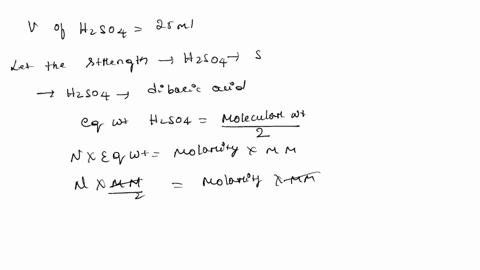 V of H₂SO₄ = 25 ml
Let the strength → H₂SO₄ → S
→ H₂SO₄ → dibasic acid
Eq wt H₂SO₄ = Molecular wt / 2
N × Eq wt = Molarity × MM
N × MM / 2 = Molarity × MM